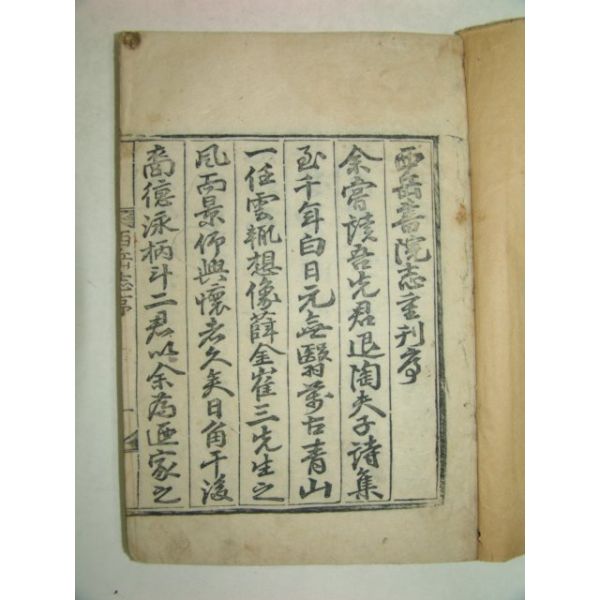 西岳書院志重刊序
余嘗讀吾先君退陶夫子詩集
至千年白日元無翳萬古青山
一任雲輒想像薛金崔三先生之
風而景仰興懷者久矣日角千後
裔德泳柄斗二君以余為迺家之
西岳志序